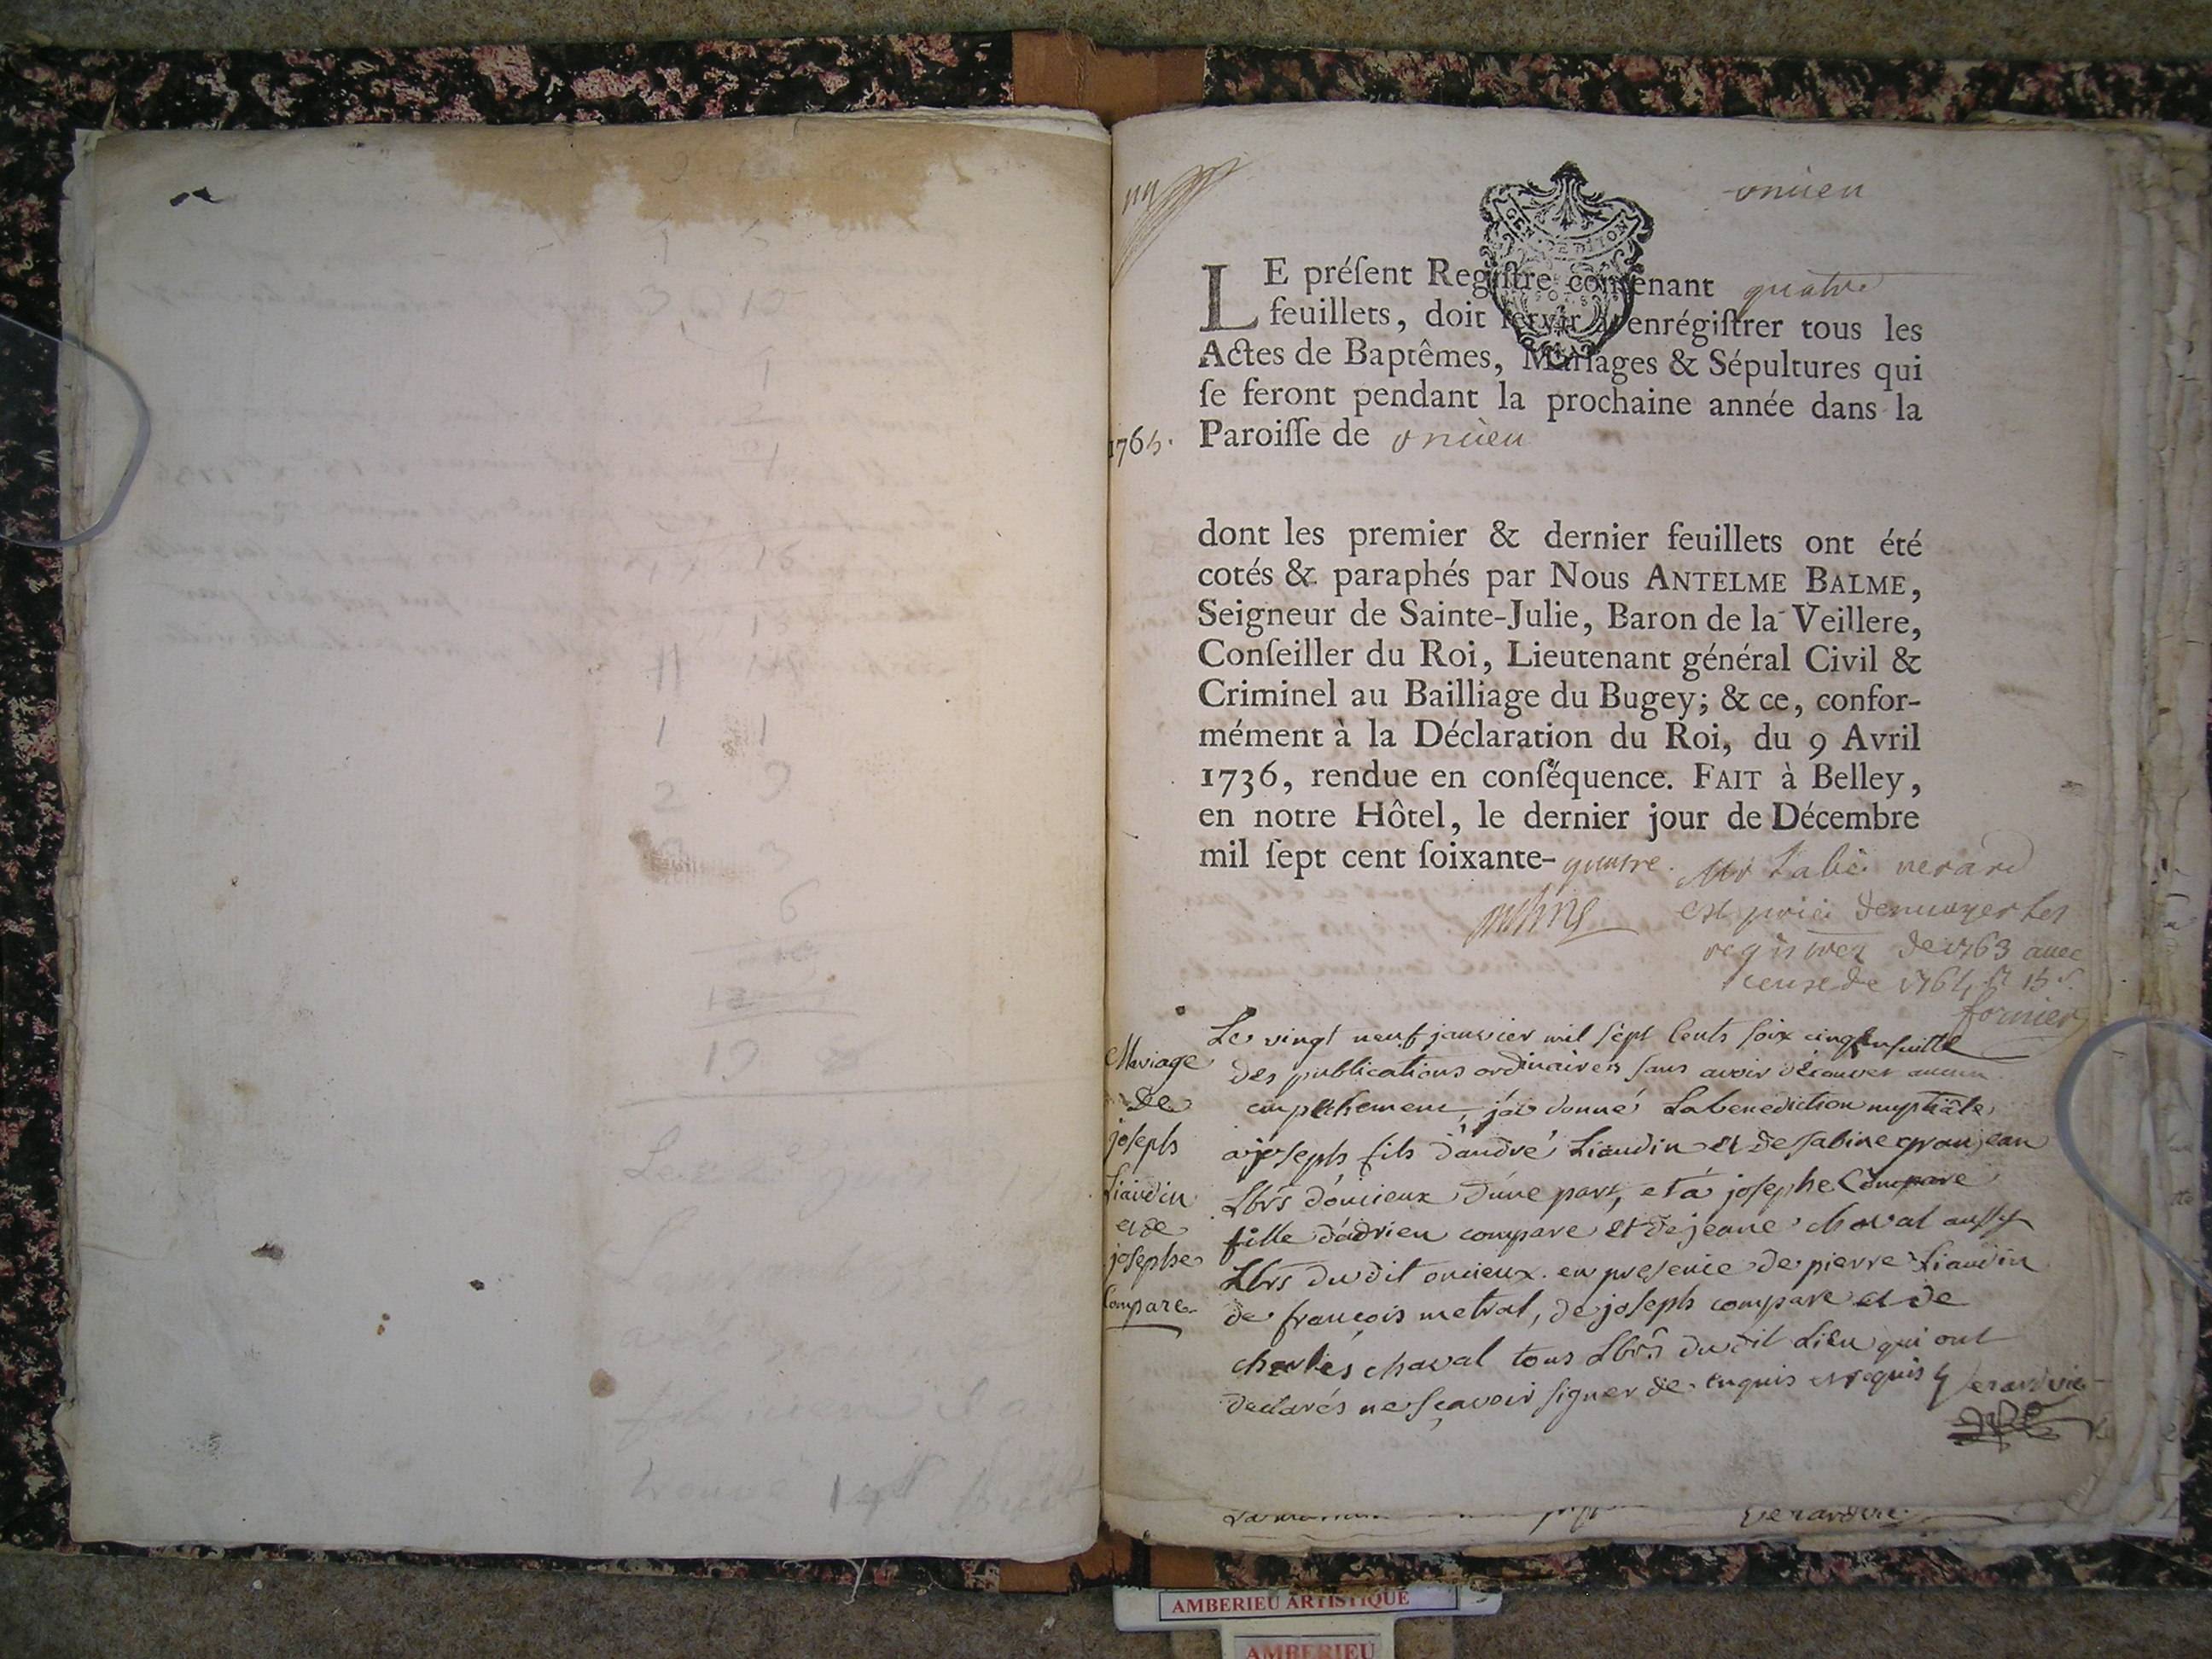 onuieu
LE préſent Regiſtre contenant quatre
feuillets, doit ſervir à enrégiſtrer tous les
Actes de Baptêmes, Mariages & Sépultures qui
ſe feront pendant la prochaine année dans la
1765. Paroiſſe de onuieu
dont les premier & dernier feuillets ont été
cotés & paraphés par Nous ANTELME BALME,
Seigneur de Sainte-Julie, Baron de la Veillere,
Conſeiller du Roi, Lieutenant général Civil &
Criminel au Bailliage du Bugey; & ce, confor-
mément à la Déclaration du Roi, du 9 Avril
1736, rendue en conſéquence. FAIT à Belley,
en notre Hôtel, le dernier jour de Décembre
mil ſept cent ſoixante-quatre.
Mr Labé verard
est prié denuoyer les
registres de 1763 auec
ceux de 1764 et 15 s.
fornier
Mariage
De
joseph
Liaudin
et de
josephe
Compare
Le vingt neuf janvier mil sept cents soix cinq ensuitte
des publications ordinaires sans avoir décauver aucun
empechement, j'ai donné La benediction nuptiâle
a joseph fils d'andré Liaudin et de sabine granjean
Lbrs d'oncieux d'une part, et a josephe Compare
fille d'adrien compare et de jeane chaval aussy
Lbrs du dit oncieux. en presence de pierre Liaudin
de françois metral, de joseph compare et de
charles chaval tous Lbrs du dit Lieu qui ont
declarés ne sçavoir signer de enquis et requis
verard vic
Verard vic.
AMBERIEU ARTISTIQUE
AMBERIEU